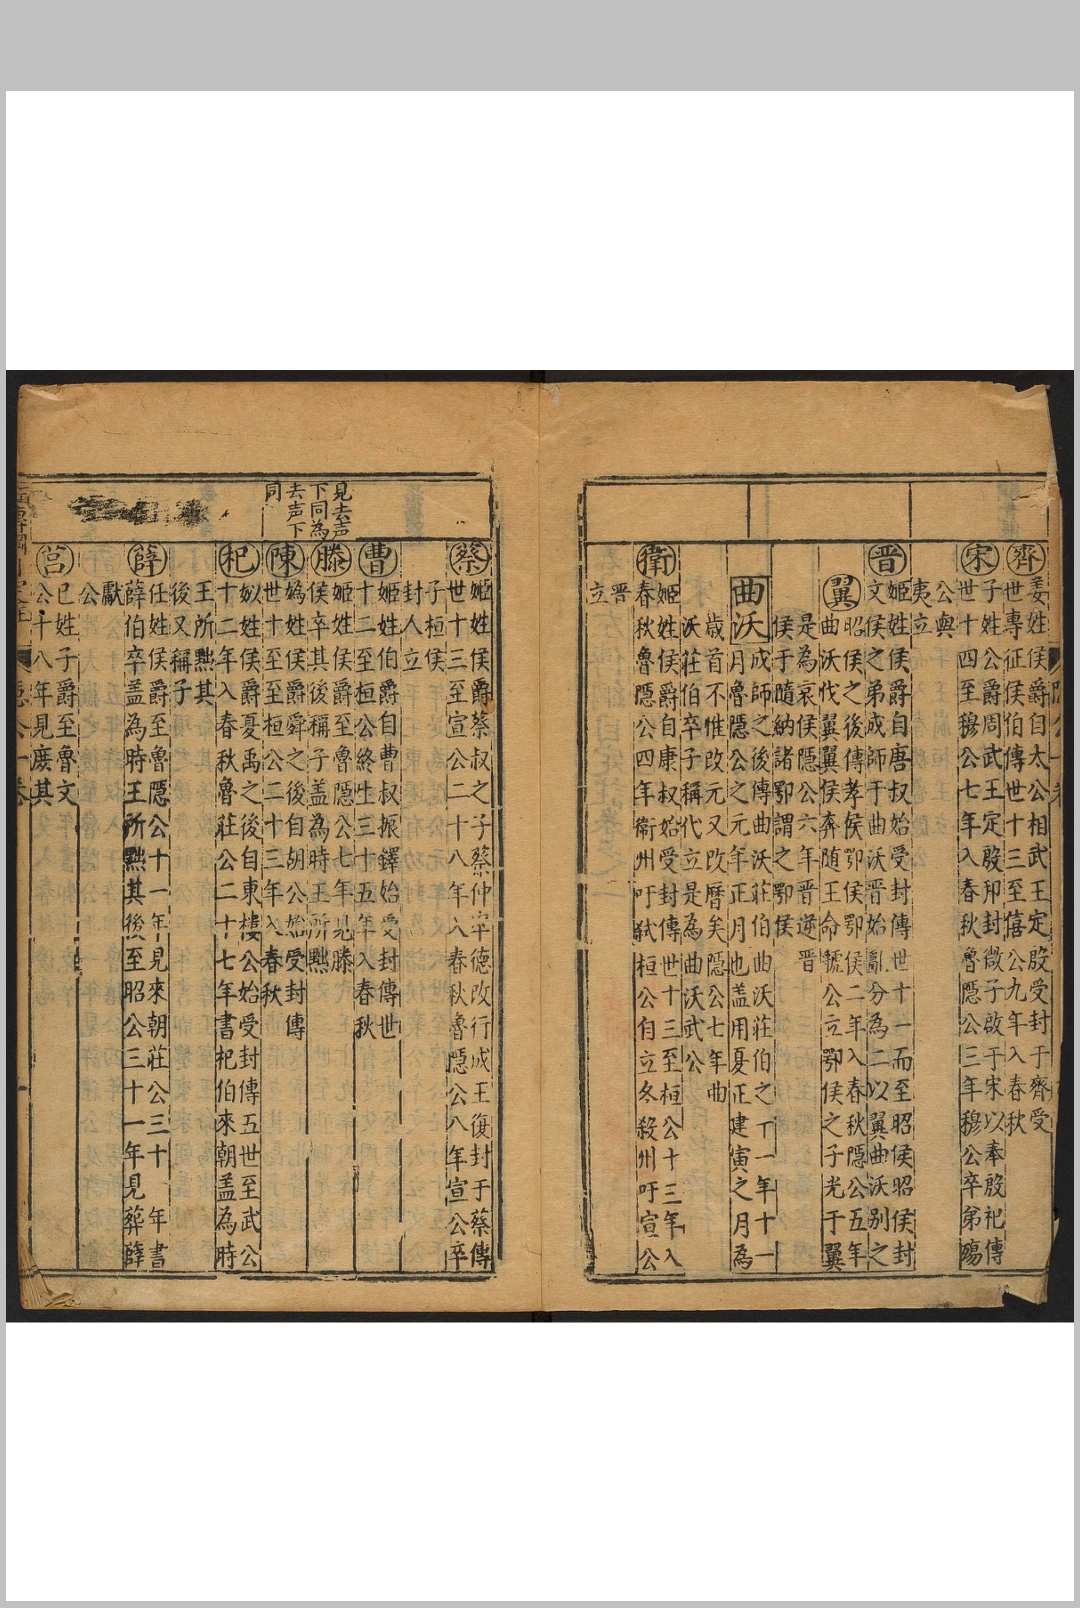 齊
姜姓侯爵自太公相武王定殷受封于齊受
世專征侯伯傳世十三至僖公九年入春秋
宋
子姓公爵周武王定殷卽封微子啟于宋以奉殷祀傳
世十四至穆公七年入春秋魯隱公三年穆公卒弟殤
公與
夷立
晉
姬姓侯爵自唐叔始受封傳世十一而至昭侯昭侯封
文侯之弟成師于曲沃晉始亂分為二以翼曲沃别之
翼
昭侯之後傳孝侯鄂侯鄂侯二年入春秋隱公五年
曲沃伐翼翼侯奔随王命虢公立鄂侯之子光于翼
是為哀侯隱公六年晉逆晉
侯于隨納諸鄂謂之鄂侯
曲沃
成師之後傳曲沃莊伯曲沃莊伯之丅一年十一
月魯隱公之元年正月也盖用夏正建寅之月為
歳首不惟改元又改曆矣隱公七年曲
沃莊伯卒子稱代立是為曲沃武公
衛
姬姓侯爵自康叔始受封傳世十三至桓公十三年入
春秋魯隱公四年衛州吁弒桓公自立冬殺州吁宣公
晋
立
見去声
下同為
去声下
同
蔡
姬姓侯爵蔡叔之子蔡仲牢德改行成王復封于蔡傳
世十三至宣公二十八年入春秋魯隱公八年宣公卒
子桓侯
封人立
曹
姬姓伯爵自曹叔振鐸始受封傳世
十三至桓公終生三十五年入春秋
滕
姬姓侯爵至魯隱公七年見滕
侯卒其後稱子盖為時王所黜
陳
媯姓侯爵舜之後自胡公始受封傳
世十至桓公二十三年入春秋
杞
姒姓侯爵夏禹之後自東樓公始受封傳五世至武公
十二年入春秋魯莊公二十七年書杞伯來朝盖為時
王所黜其
後又稱子
薛
任姓侯爵至魯隱公十一年見來朝莊公三十 年書
薛伯卒盖為時王所黜其後至昭公三十一年見葬薛
獻
公
莒
己姓子爵至魯文
公十八年見庶其